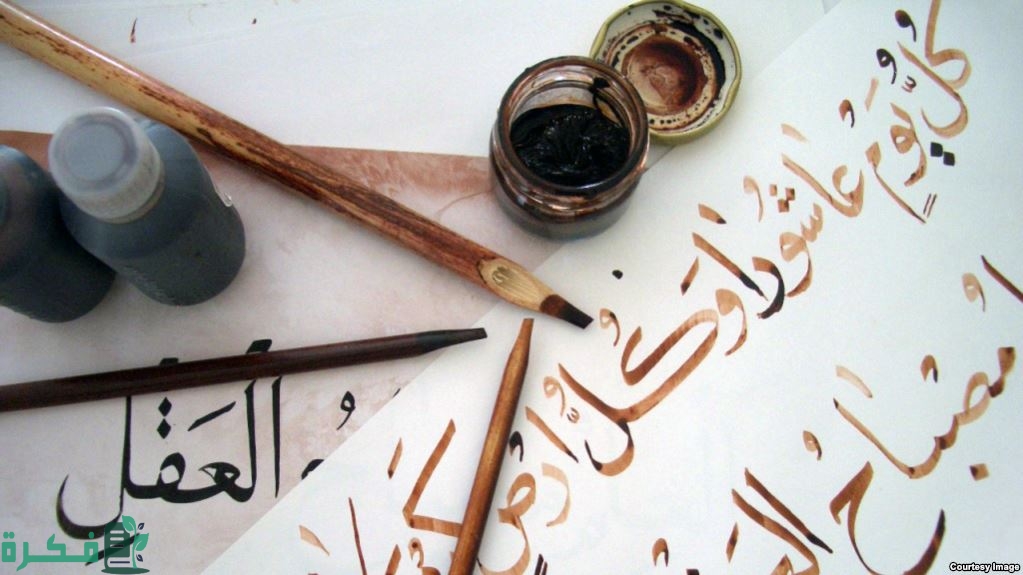 كُلُّ يَومٍ عاشورا وَكُلُّ أرضٍ
مُصباح
العَقل
فكرة
Courtesy Image